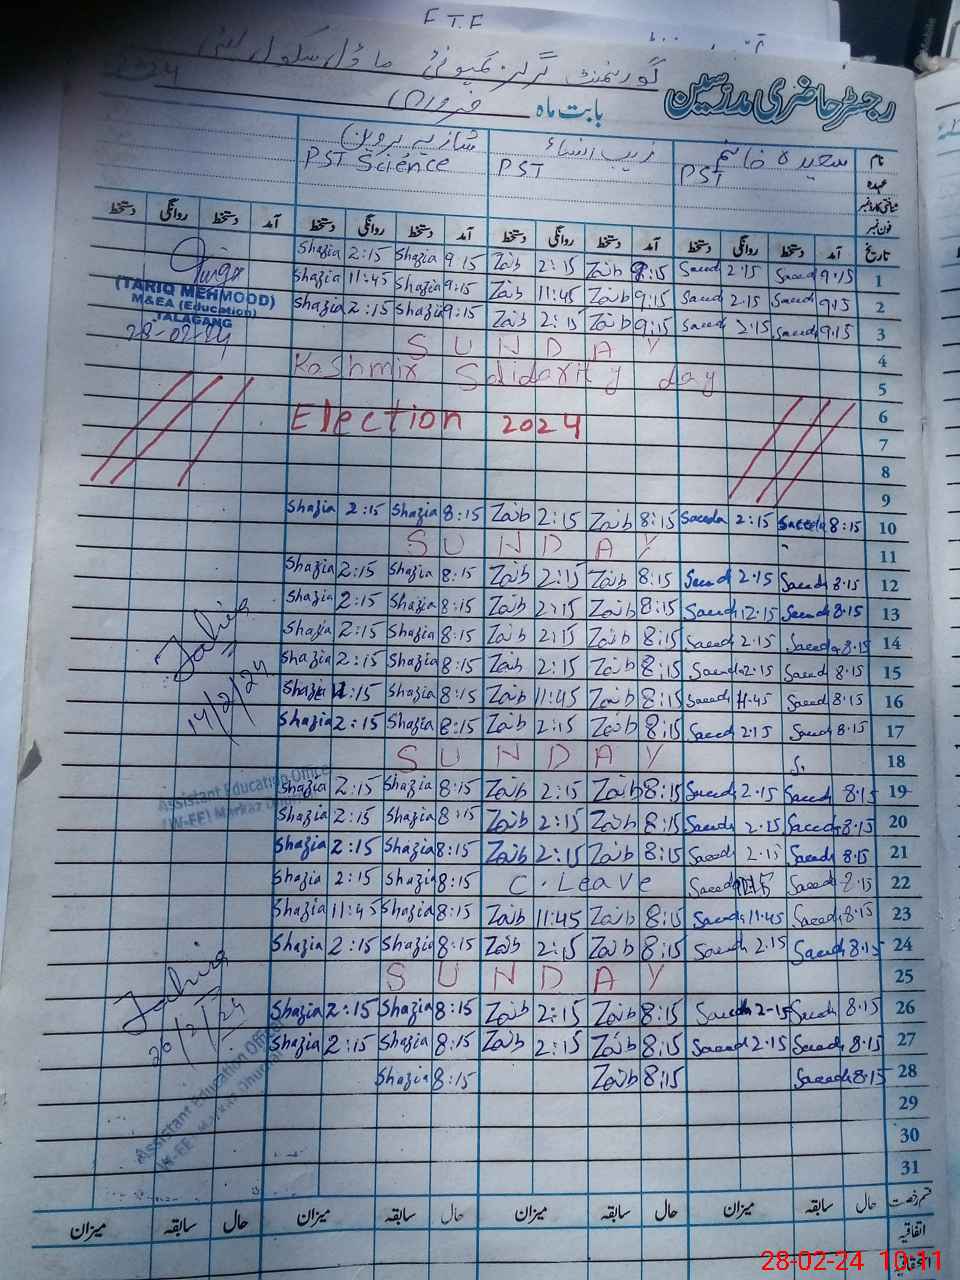 E.T.F
گورنمنٹ گرلز کمیونٹی ماڈل سکول
رجسٹر حاضری مدرسین
بابت ماہ فروری 2024
نام سعیدہ خانم زیب النساء شازیہ پروین
عہدہ PST PST PST Science
فون نمبر
تاریخ آمد دستخط روانگی دستخط آمد دستخط روانگی دستخط آمد دستخط روانگی دستخط آمد دستخط روانگی دستخط
Shazia 2:15 Shazia 9:15 Zaib 2:15 Zaib 9:15 Saeed 2·15 Saeed 9·15 1
Shazia 11:45 Shazia 9:15 Zaib 11:45 Zaib 9:15 Saeed 2·15 Saeed 9·15 2
Shazia 2:15 Shazia 9:15 Zaib 2:15 Zaib 9:15 Saeed 2·15 Saeed 9·15 3
(TARIQ MEHMOOD)
M&EA (Education)
TALAGANG
28-02-24
SUNDAY 4
Kashmir Solidarity day 5
6
Election 2024 7
8
9
Shazia 2:15 Shazia 8:15 Zaib 2:15 Zaib 8:15 Saeeda 2:15 Saeeda 8:15 10
SUNDAY 11
Shazia 2:15 Shazia 8:15 Zaib 2:15 Zaib 8:15 Saeed 2·15 Saeed 8·15 12
Shazia 2:15 Shazia 8:15 Zaib 2:15 Zaib 8:15 Saeed 2·15 Saeed 8·15 13
Shazia 2:15 Shazia 8:15 Zaib 2:15 Zaib 8:15 Saeed 2·15 Saeed 8·15 14
Shazia 2:15 Shazia 8:15 Zaib 2:15 Zaib 8:15 Saeed 2·15 Saeed 8·15 15
Shazia 8:15 Zaib 11:45 Zaib 8:15 Saeed 11·45 Saeed 8·15 16
14/2/24
Shazia 2:15 Shazia 8:15 Zaib 2:15 Zaib 8:15 Saeed 2·15 Saeed 8·15 17
SUNDAY 18
Assistant Education Officer
(W-EE) Markaz
Shazia 2:15 Shazia 8:15 Zaib 2:15 Zaib 8:15 Saeed 2·15 Saeed 8·15 19
Shazia 2:15 Shazia 8:15 Zaib 2:15 Zaib 8:15 Saeed 2·15 Saeed 8·15 20
Shazia 2:15 Shazia 8:15 Zaib 2:15 Zaib 8:15 Saeed 2·15 Saeed 8·15 21
Shazia 2:15 Shazia 8:15 C. Leave Saeed Saeed 8·15 22
Shazia 11:45 Shazia 8:15 Zaib 11:45 Zaib 8:15 Saeed 11·45 Saeed 8·15 23
Shazia 2:15 Shazia 8:15 Zaib 2:15 Zaib 8:15 Saeed 2·15 Saeed 8·15 24
SUNDAY 25
Shazia 2:15 Shazia 8:15 Zaib 2:15 Zaib 8:15 Saeed 2-15 Saeed 8·15 26
26/2/24
Shazia 2:15 Shazia 8:15 Zaib 2:15 Zaib 8:15 Saeed 2·15 Saeed 8·15 27
Shazia 8:15 Zaib 8:15 Saeed 8·15 28
Assistant Education Officer
(W-EE) Markaz
29
30
31
قسم رخصت حال سابقہ میزان حال سابقہ میزان حال سابقہ میزان حال سابقہ میزان
اتفاقیہ
28-02-24 10:11